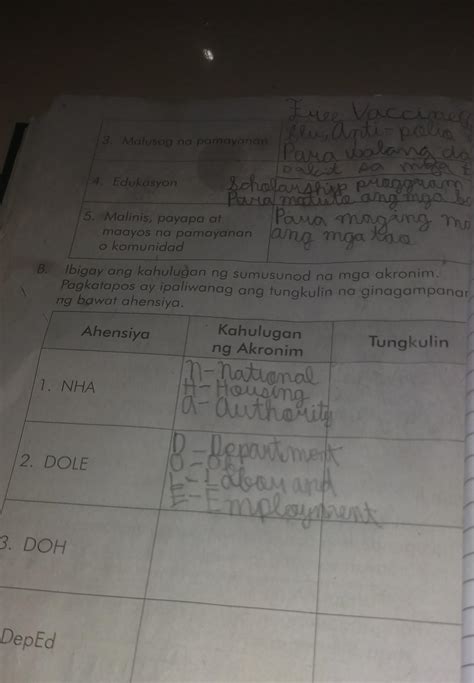 Free Vaccines
flu, Anti-polio
3. Malusog na pamayanan
Para walang
sa mga
4. Edukasyon
Scholarship proggram
Para matuto ang mga
5. Malinis, payapa at
maayos na pamayanan
o komunidad
Para maging
ang mga tao
B. Ibigay ang kahulugan ng sumusunod na mga akronim.
Pagkatapos ay ipaliwanag ang tungkulin na ginagampanan
ng bawat ahensiya.
Ahensiya
Kahulugan
ng Akronim
Tungkulin
1. NHA
N-National
H-Housing
A-Authority
2. DOLE
D-Department
O-Of
L-Labor and
E-Employment
3. DOH
DepEd